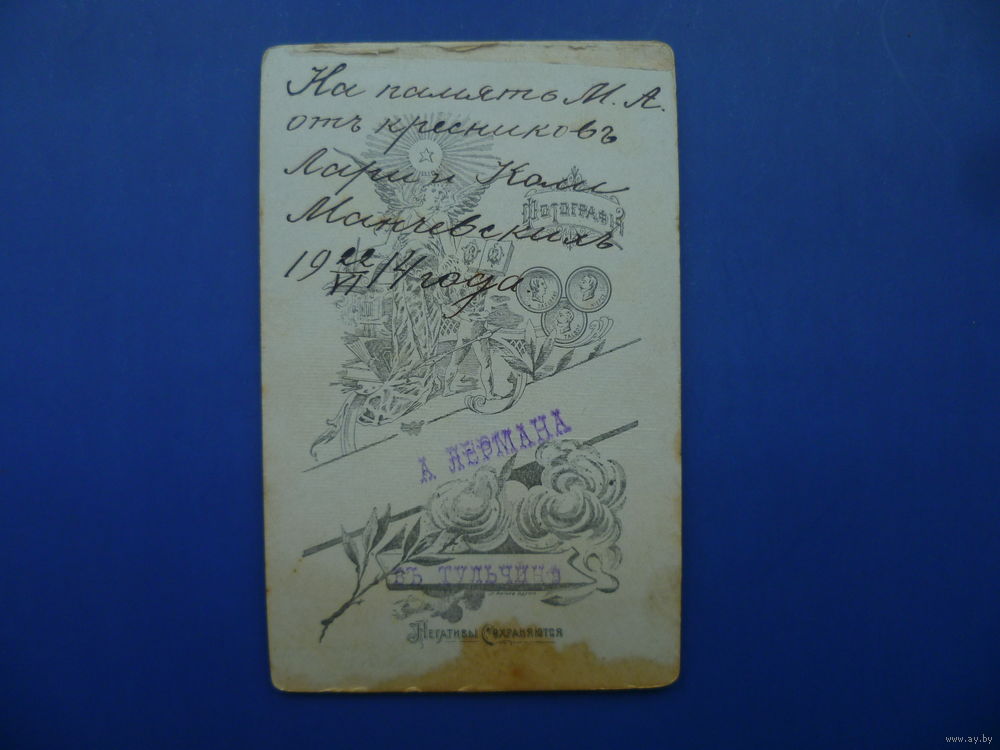 На память М. А.
отъ кресниковъ
Лари и Коли
Манчевскихъ
19 22/VI 14 года
Фотографія
А ЛЕРМАНА
ВЪ ТУЛЬЧИНѢ
Негативы Сохраняются
www.ay.by